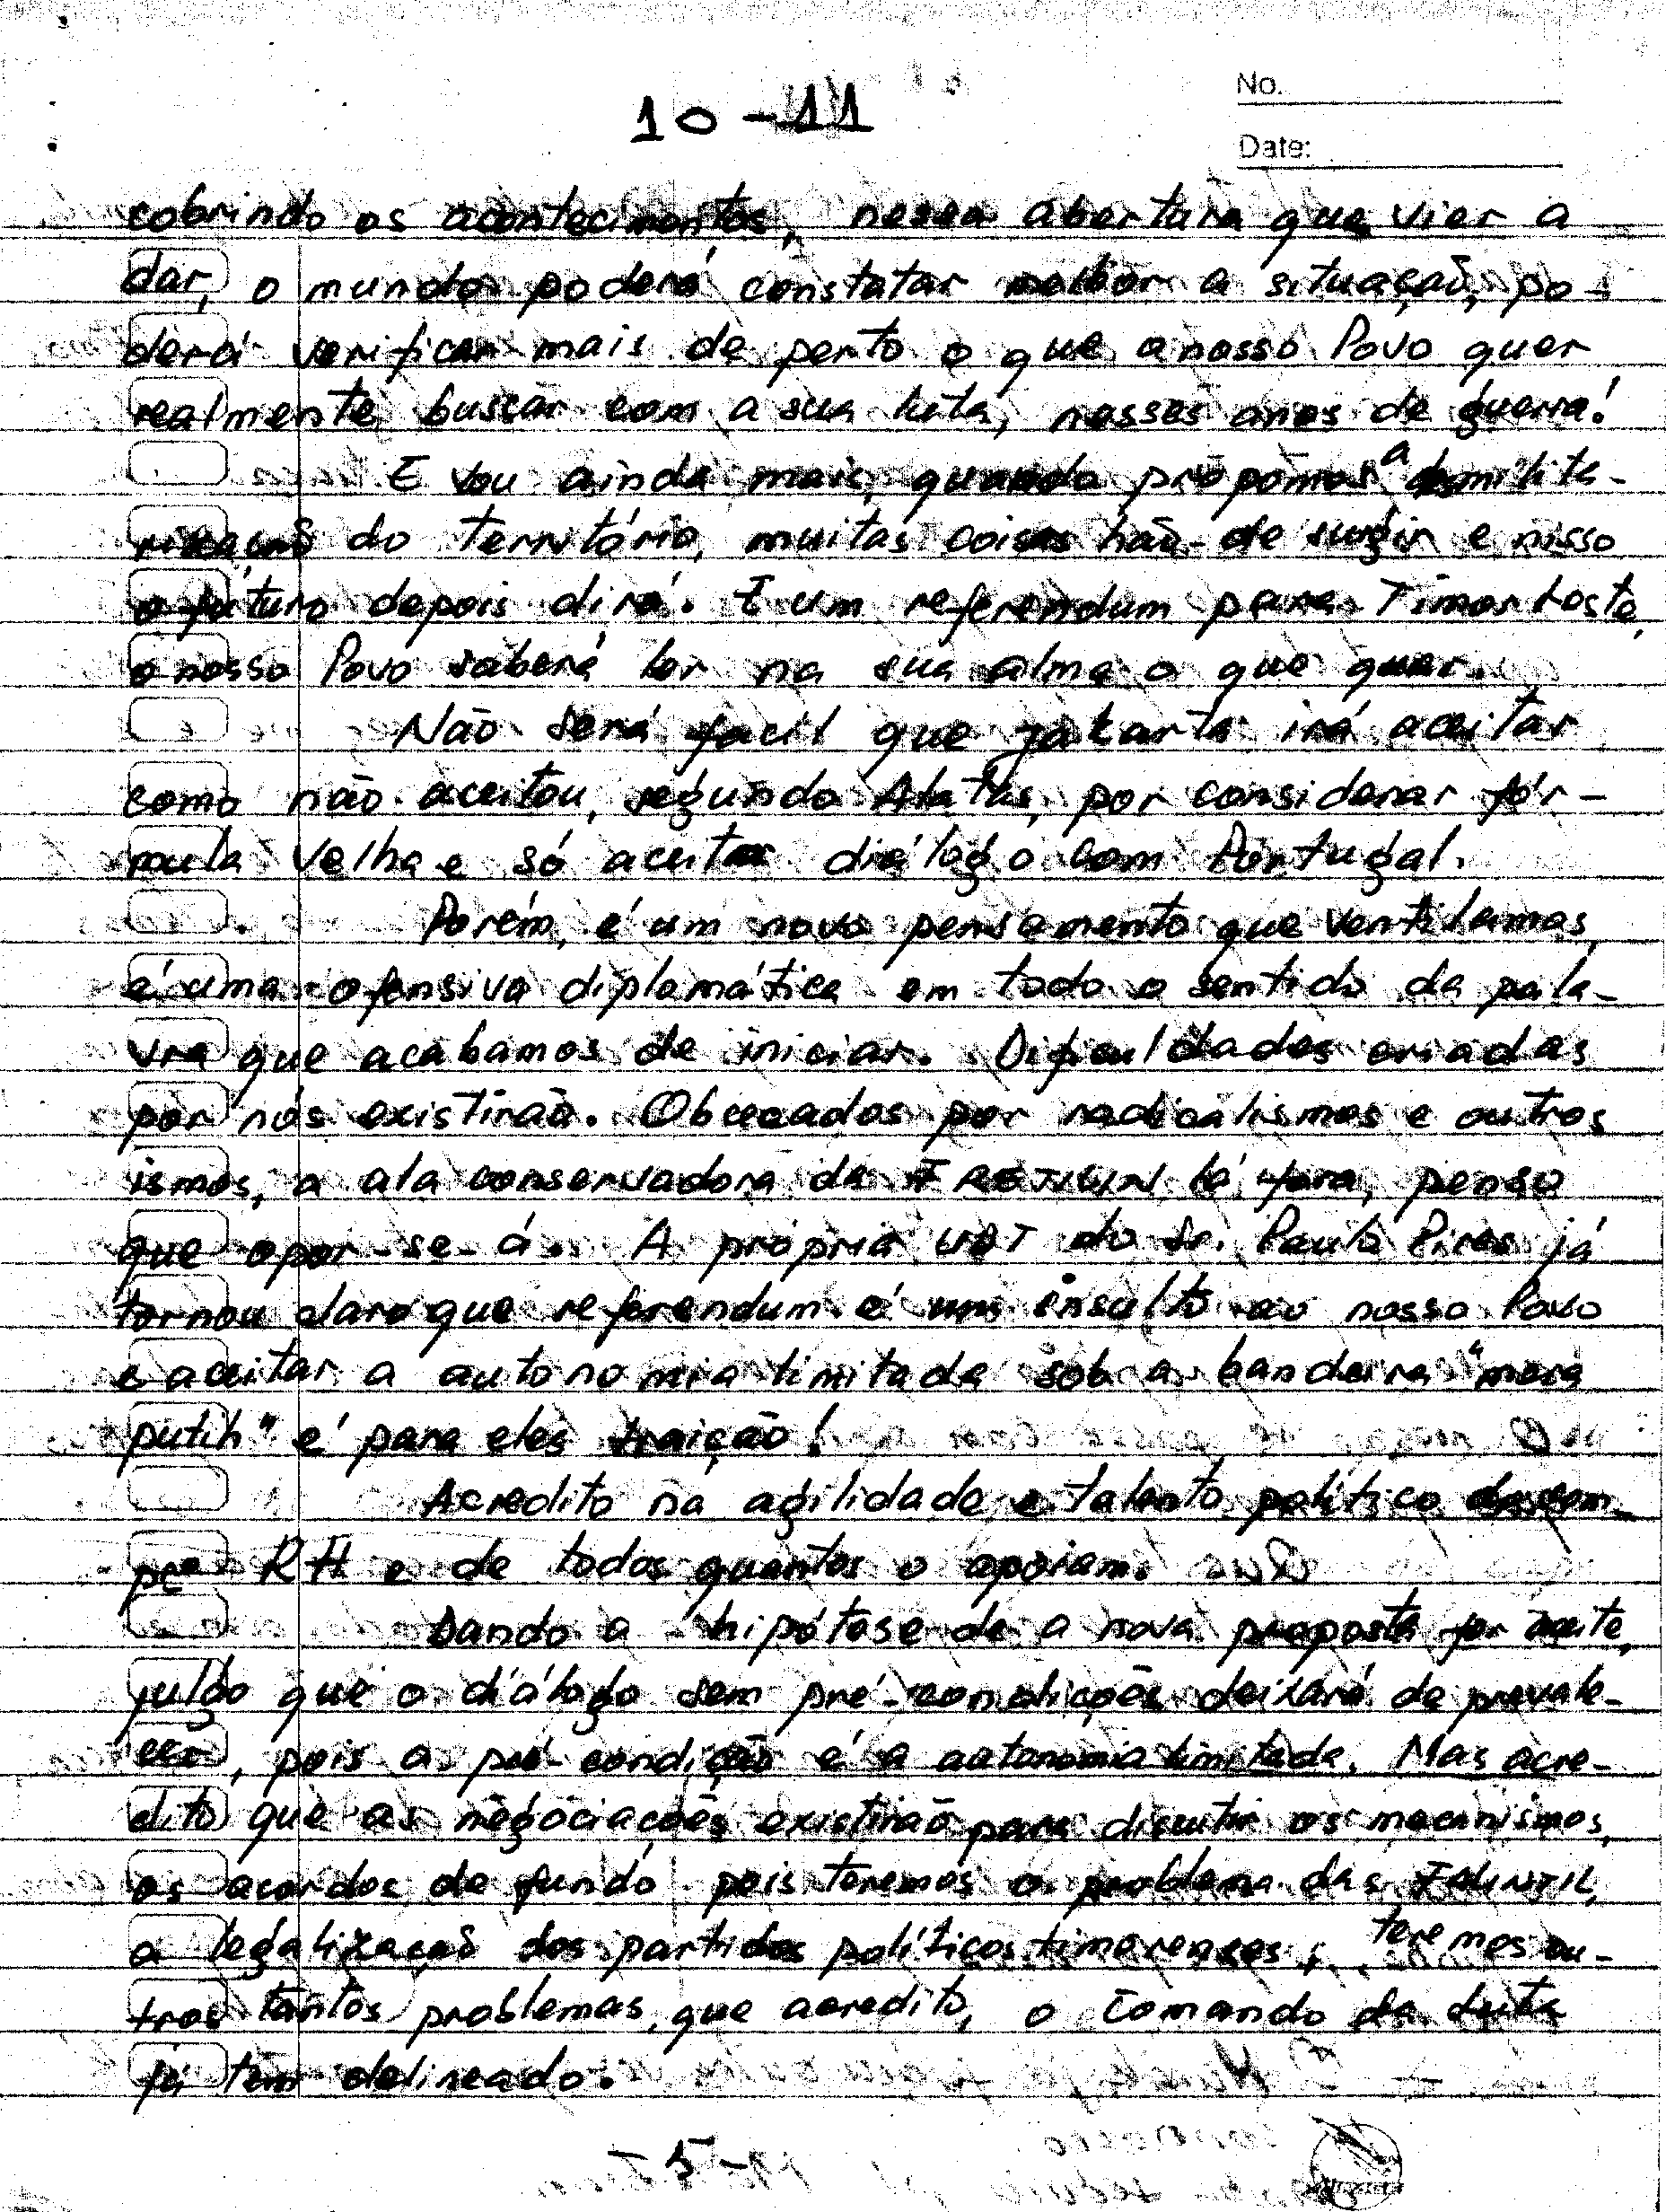 10-11
No.
Date:
cobrindo os acontecimentos, nessa abertura que vier a
dar, o mundo poderá constatar melhor a situação, po-
derá verificar mais de perto o que o nosso Povo quer
realmente buscar com a sua luta, nesses anos de guerra!
E vou ainda mais, quando propomos a desmilita-
rização do território, muitas coisas hão-de surgir e nisso
o futuro depois dirá. E um referendum para Timor Leste,
o nosso Povo saberá ler na sua alma o que quer.
Não será facil que Jakarta irá aceitar
como não aceitou, segundo Alatas, por considerar fór-
mula velha e só aceitar diálogo com Portugal.
Porém, é um novo pensamento que ventilamos,
é uma ofensiva diplomática em todo o sentido da pala-
vra que acabamos de iniciar. Dificuldades criadas
por nós existirão. Obcecados por radicalismos e outros
ismos, a ala conservadora da FRETILIN lá fora, penso
que opor-se-á. A própria UDT do Sr. Paulo Pires já
tornou claro que referendum é um insulto ao nosso Povo
e aceitar a autonomia limitada sob a bandeira "mera
putih" é para eles traição!
Acredito na agilidade e talento político de sem-
pre RH e de todos quantos o apoiam.
Dando a hipótese de a nova proposta for aceite,
julgo que o diálogo sem pré-condições deixará de prevale-
cer, pois a pré-condição é a autonomia limitada. Mas acre-
dito que as negociações existirão para discutir os mecanismos,
os acordos de fundo pois teremos o problema das FALINTIL,
a legalização dos partidos políticos timorenses; teremos ou-
tros tantos problemas, que acredito, o Comando da Luta
já tem delineado.
- 5 -